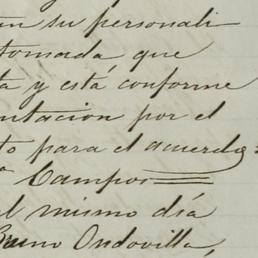 su personali
tomada que
y está conforme
por el
para el acuerdo:
Campos
mismo día
Bruno Ondovilla,